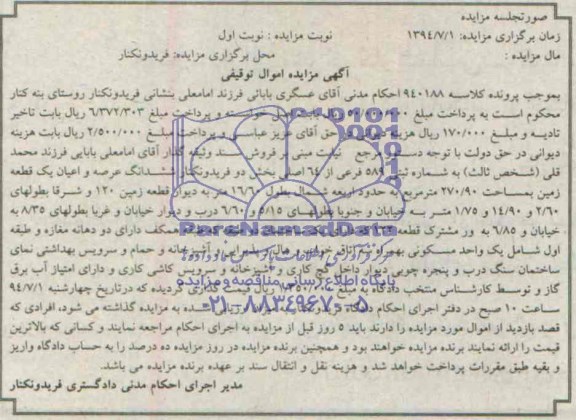 صورتجلسه مزایده
زمان برگزاری مزایده: ۱۳۹٤/۷/۱ نوبت مزایده : نوبت اول
مال مزایده : محل برگزاری مزایده: فریدونکنار
آگهی مزایده اموال توقیفی
بموجب پرونده کلاسه ۹٤۰۱۸۸ احکام مدنی آقای عسگری بابائی فرزند امامعلی بنشانی فریدونکنار روستای بنه کنار
محکوم است به پرداخت مبلغ ریال بابت اصل خواسته و پرداخت مبلغ ٦/۳۷۲/۳۰۳ ریال بابت تاخیر
تادیه و مبلغ ۱۷۰/۰۰۰ ریال هزینه دادرسی در حق آقای عزیز عباسی و پرداخت مبلغ ۲/۵۰۰/۰۰۰ ریال بابت هزینه
دیوانی در حق دولت با توجه دستور مرجع نیابت مبنی بر فروش سند وثیقه گذار آقای امامعلی بابایی فرزند محمد
قلی (شخص ثالث) به شماره ثبتی ۵۸۹ فرعی از ٦٤ اصلی بخش دو فریدونکنار ششدانگ عرصه و اعیان یک قطعه
زمین بمساحت ۲۷۰/۹۰ مترمربع به حدود اربعه شمالا بطول ۱٦/٦۰ متر به دیوار قطعه زمین ۱۲۰ و شرقا بطولهای
۲/٦۰ و ۱٤/۹۰ و ۱/۷۵ متر به خیابان و جنوبا بطولهای ۵/۱۵ و ٦/٦۰ درب و دیوار خیابان و غربا بطولهای ۸/۳۵ به
خیابان و ٦/۸۵ به ور مشترک قطعه همکف دارای دو دهانه مغازه و طبقه
اول شامل یک واحد مسکونی اتاق خواب و هال و پذیرایی و آشپزخانه و حمام و سرویس بهداشتی نمای
ساختمان سنگ درب و پنجره چوبی دیوار داخل گچ کاری و آشپزخانه و سرویس کاشی کاری و دارای امتیاز آب برق
گاز و توسط کارشناس منتخب دادگاه به مبلغ ریال قیمت گذاری گردیده که درتاریخ چهارشنبه ۹٤/۷/۱
ساعت ۱۰ صبح در دفتر اجرای احکام دادگاه به مزایده گذاشته می شود، افرادی که
قصد بازدید از اموال مورد مزایده را دارند باید ۵ روز قبل از مزایده به اجرای احکام مراجعه نمایند و کسانی که بالاترین
قیمت را ارائه نمایند برنده مزایده خواهند بود و همچنین برنده مزایده در روز مزایده ده درصد را به حساب دادگاه واریز
و بقیه طبق مقررات پرداخت خواهد شد و هزینه نقل و انتقال سند بر عهده برنده مزایده می باشد.
مدیر اجرای احکام مدنی دادگستری فریدونکنار
ParsNamadData
پایگاه اطلاع رسانی مناقصه و مزایده
۰۲۱-۸۸۳٤۹٦۷۰-۵